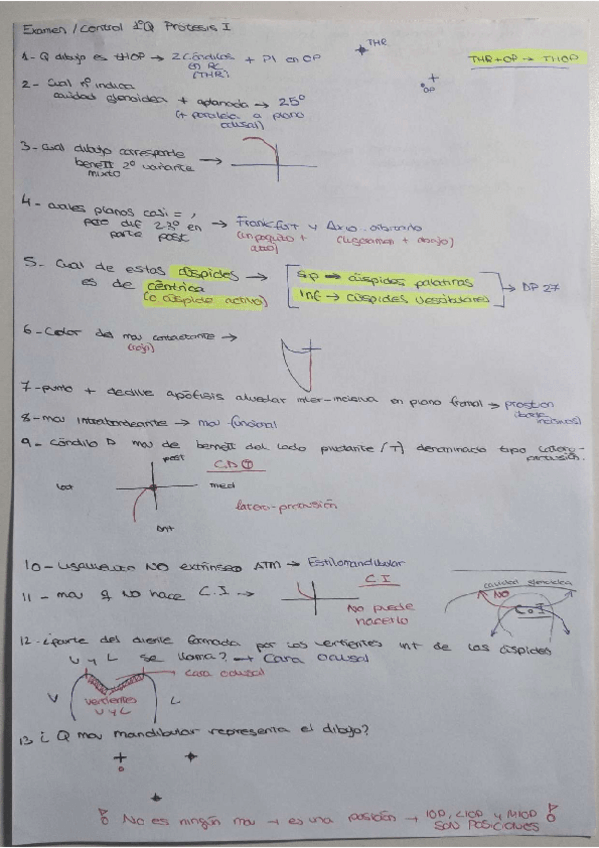 Examen / Control 1ºQ Protesis I
THR
1- Q dibujo es tHOP → 2 Cóndilos + PI en OP
(THR)
THR + OP → THOP
OP
2- Cual nº indica
cavidad glenoidea + aplanada → 25º
(+ paralela a plano
oclusal)
3- Cual dibujo corresponde
benett 2º variante
mixto
4- cuales planos casi = ,
pero dif 23º en
parte post
Frankfurt y Axio-orbitario
(un poquito +
alto)
5- Cual de estas cúspides
es de céntrica
(o cúspide activa)
Sp → cúspides palatinas
Inf → cúspides vestibulares
DP 27
6- Color del mov contactante →
(rojo)
7- punto + declive apófisis alveolar inter-incisiva en plano frontal → prostion
(borde
incisivos)
8- mov intrabordeante → mov funcional
9- Cóndilo D mov de benett del lado pivotante (T) denominado tipo latero-
protusión.
post
C.D T
lat
med
latero-protusión
ant
10- Ligamento NO extrínseco ATM → Estilomandibular
11- mov q NO hace C.I →
C I
No puede
hacerlo
cavidad glenoidea
NO
C.I
12. ¿parte del diente formada por las vertientes int de las cúspides
V y L se llama? → Cara oclusal
cara oclusal
V
vertientes
V y L
L
13 ¿ Q mov mandibular representa el dibujo?
! No es ningún mov → es una posición → IOP, LIOP y MIOP !
SON POSICIONES